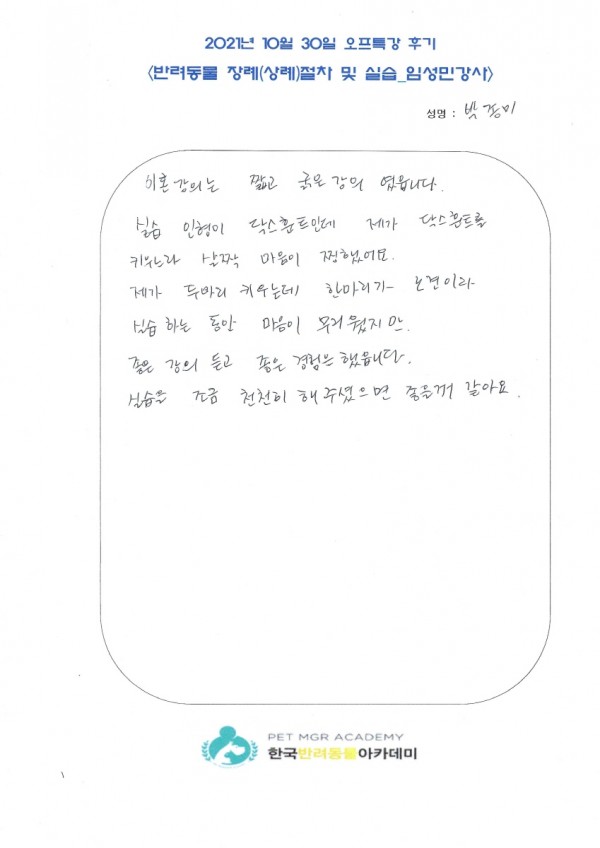 2021년 10월 30일 오프특강 후기
<반려동물 장례(상례)절차 및 실습_임성민강사>
성명 : 박종미
이론강의는 짧고 굵은 강의 였읍니다.
실습 인형이 닥스훈트인데 제가 닥스훈트를
키우느라 살짝 마음이 찡했어요.
제가 두마리 키우는데 한마리가 노견이라
실습 하는 동안 마음이 무거웠지만.
좋은 강의 듣고 좋은 경험은 했읍니다.
실습을 조금 천천히 해 주셨으면 좋을꺼 같아요.
PET MGR ACADEMY
한국반려동물아카데미